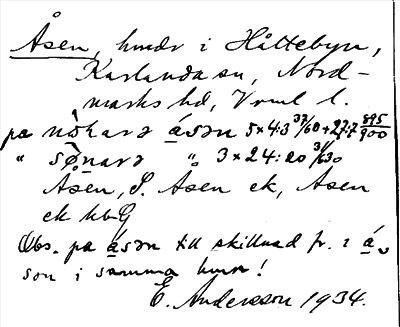 Åsen, hmdr i Håltebyn,
Karlanda sn, Nord-
marks hd, Vrml l.
pa nòkarə ásən 5×4:3 37/60+27:7 895/900
" sønarə " 3×24:20 31/630
Åsen, S. Åsen ek, Åsen
ek hbG
Obs. pa ásən till skillnad fr. i á-
sən i samma hmn!
E. Andersson 1934.